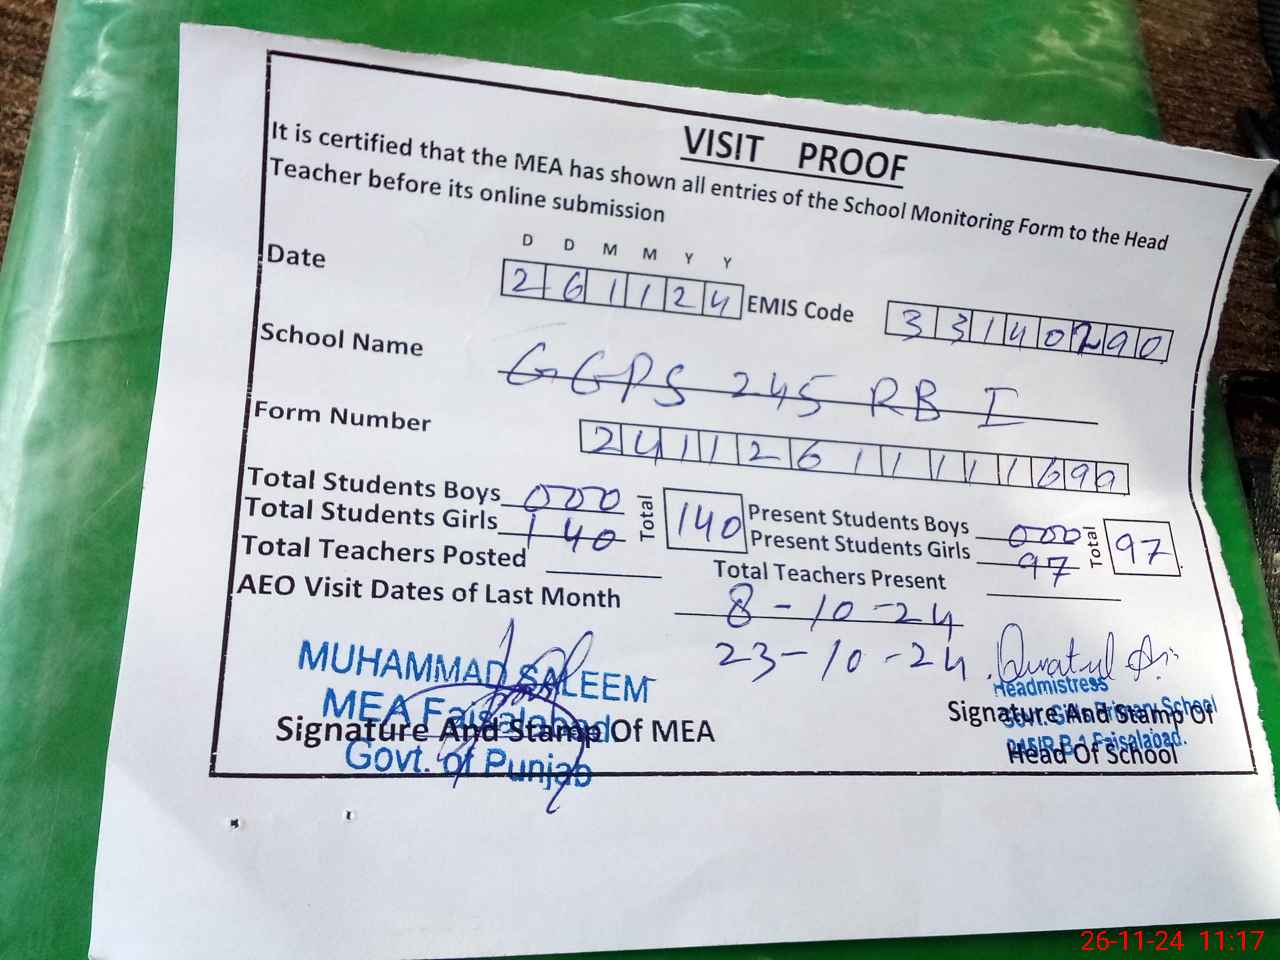 VISIT PROOF
It is certified that the MEA has shown all entries of the School Monitoring Form to the Head
Teacher before its online submission
D D M M Y Y
Date 2 6 1 1 2 4 EMIS Code 3 3 1 4 0 2 9 0
School Name GGPS 245 RB I
Form Number 2 4 1 1 2 6 1 1 1 1 1 6 9 9
Total Students Boys 000 Total 140 Present Students Boys 000 Total 97
Total Students Girls 140 Present Students Girls 97
Total Teachers Posted Total Teachers Present
AEO Visit Dates of Last Month 8-10-24
23-10-24
MUHAMMAD SALEEM
MEA Faisalabad
Govt. of Punjab
Signature And Stamp Of MEA
Headmistress
Govt. Girls Primary School
245/R.B-1 Faisalabad.
Signature And Stamp Of
Head Of School
26-11-24 11:17